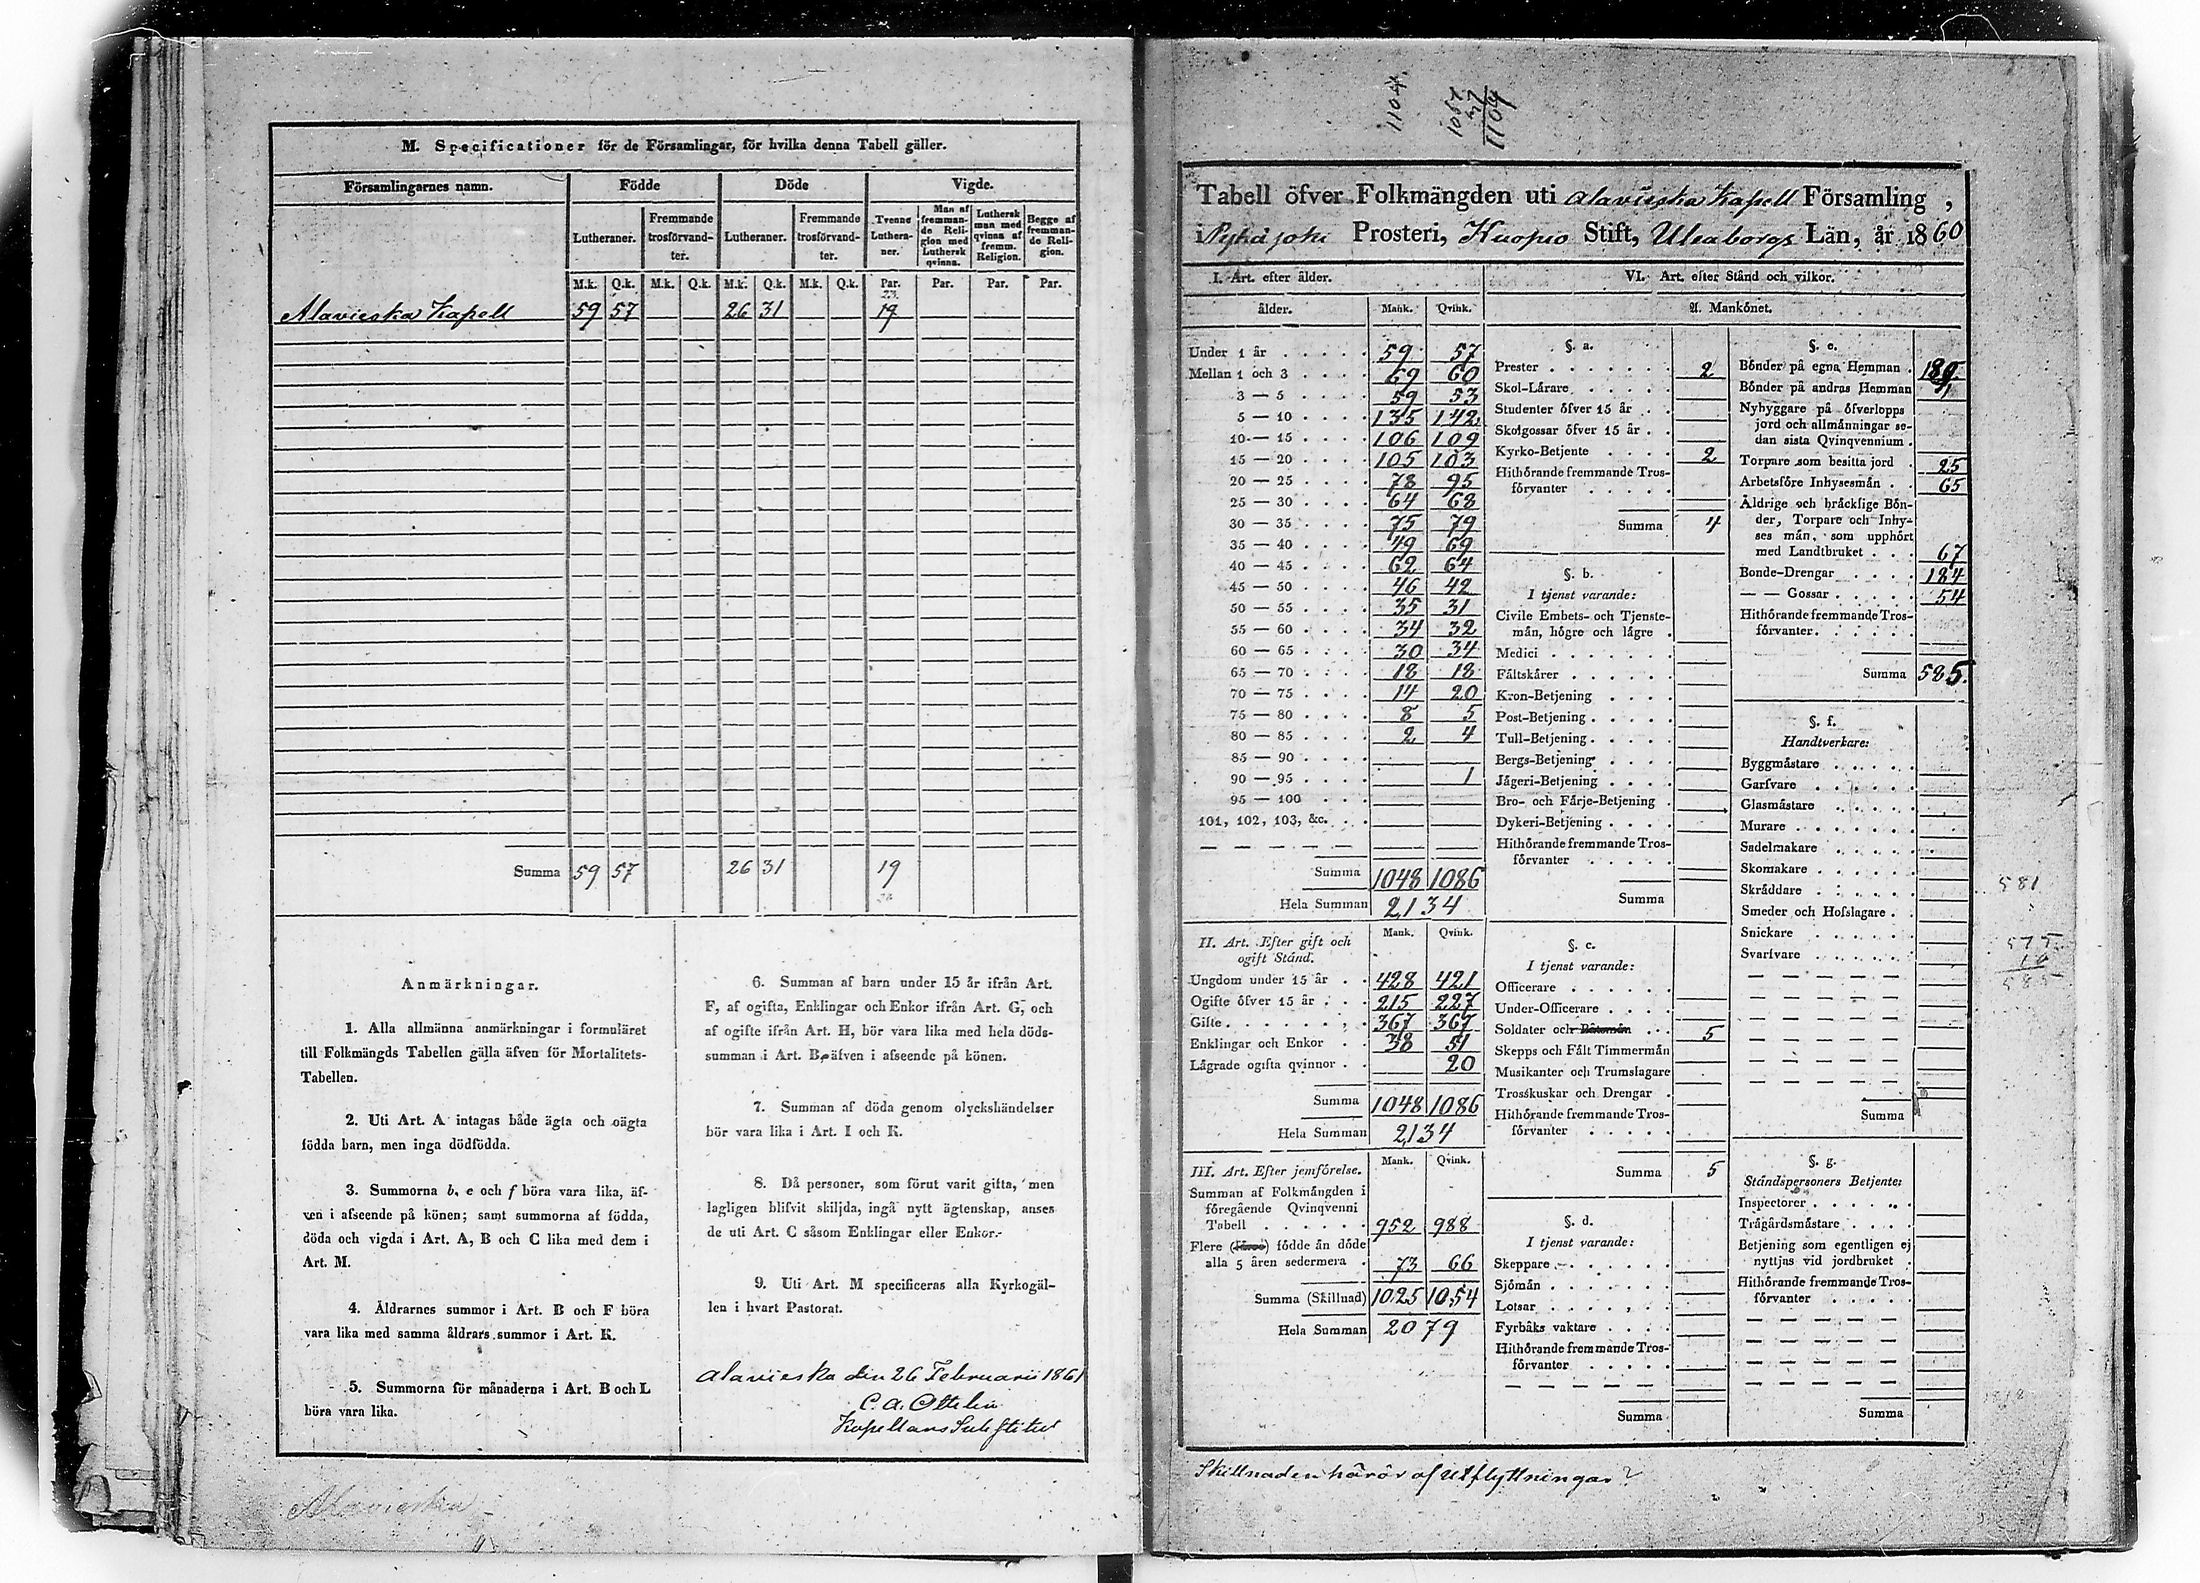 M. Specificationer för de Församlingar, för hvilka denna Tabell gäller.
Församlingarnes namn. Födde Döde Vigde.
Lutheraner. Fremmande trosförvandter. Lutheraner. Fremmande trosförvandter. Tvenne Lutheraner. Man af fremmande Religion med Luthersk qvinna. Luthersk man med qvinna af fremm. Religion. Begge af fremmande Religion.
M.k. Q.k. M.k. Q.k. M.k. Q.k. M.k. Q.k. Par. Par. Par. Par.
23.
Alavieska Kapell 59 57 26 31 19
Summa 59 57 26 31 19
Anmärkningar.
1. Alla allmänna anmärkningar i formuläret
till Folkmängds Tabellen gälla äfven för Mortalitets-
Tabellen.
2. Uti Art. A intagas både ägta och oägta
födda barn, men inga dödfödda.
3. Summorna b, e och f böra vara lika, äf-
ven i afseende på könen; samt summorna af födda,
döda och vigda i Art. A, B och C lika med dem i
Art. M.
4. Åldrarnes summor i Art. B och F böra
vara lika med samma åldrars summor i Art. K.
5. Summorna för månaderna i Art. B och L
böra vara lika.
6. Summan af barn under 15 år ifrån Art.
F, af ogifta, Enklingar och Enkor ifrån Art. G, och
af ogifte ifrån Art. H, bör vara lika med hela döds-
summan i Art. B, äfven i afseende på könen.
7. Summan af döda genom olyckshändelser
bör vara lika i Art. I och K.
8. Då personer, som förut varit gifta, men
lagligen blifvit skiljda, ingå nytt ägtenskap, anses
de uti Art. C såsom Enklingar eller Enkor.
9. Uti Art. M specificeras alla Kyrkogäl-
len i hvart Pastorat.
Alavieska den 26 Februarii 1861
C. A. Ottelin
Kapellans Substitut
Alavieska
1104
1067
37
1104
Tabell öfver Folkmängden uti Alavieska Kapell Församling,
i Pyhäjoki Prosteri, Kuopio Stift, Uleaborgs Län, år 1860
I. Art. efter ålder.
ålder. Mank. Qvink.
Under 1 år 59 57
Mellan 1 och 3 69 60
3 — 5 59 53
5 — 10 135 142
10 — 15 106 109
15 — 20 105 103
20 — 25 78 95
25 — 30 64 68
30 — 35 75 79
35 — 40 49 69
40 — 45 62 64
45 — 50 46 42
50 — 55 35 31
55 — 60 34 32
60 — 65 30 34
65 — 70 18 18
70 — 75 14 20
75 — 80 8 5
80 — 85 2 4
85 — 90
90 — 95 1
95 — 100
101, 102, 103, &c.
Summa 1048 1086
Hela Summan 2134
II. Art. Efter gift och ogift Stånd. Mank. Qvink.
Ungdom under 15 år 428 421
Ogifte öfver 15 år 215 227
Gifte 367 367
Enklingar och Enkor 38 51
Lägrade ogifta qvinnor 20
Summa 1048 1086
Hela Summan 2134
III. Art. Efter jemförelse. Mank. Qvink.
Summan af Folkmängden i
föregående Qvinqvenni
Tabell 952 988
Flere (färre) födde än döde
alla 5 åren sedermera 73 66
Summa (Skillnad) 1025 1054
Hela Summan 2079
VI. Art. efter Stånd och vilkor.
A. Mankönet.
§. a.
Prester 2
Skol-Lärare
Studenter öfver 15 år
Skolgossar öfver 15 år
Kyrko-Betjente 2
Hithörande fremmande Tros-
förvanter
Summa 4
§. b.
I tjenst varande:
Civile Embets- och Tjenste-
män, högre och lägre
Medici
Fältskärer
Kron-Betjening
Post-Betjening
Tull-Betjening
Bergs-Betjening
Jägeri-Betjening
Bro- och Färje-Betjening
Dykeri-Betjening
Hithörande fremmande Tros-
förvanter
Summa
§. c.
I tjenst varande:
Officerare
Under-Officerare
Soldater och Båtsmän 5
Skepps och Fält Timmermän
Musikanter och Trumslagare
Trosskuskar och Drengar
Hithörande fremmande Tros-
förvanter
Summa 5
§. d.
I tjenst varande:
Skeppare
Sjömän
Lotsar
Fyrbåks vaktare
Hithörande fremmande Tros-
förvanter
Summa
§. e.
Bönder på egna Hemman
Bönder på andras Hemman
Nybyggare på öfverlopps
jord och allmänningar se-
dan sista Qvinqvennium
Torpare som besitta jord 25
Arbetsföre Inhysesmän 65
Åldrige och bräcklige Bön-
der, Torpare och Inhy-
ses män, som upphört
med Landtbruket 67
Bonde-Drengar 184
— — Gossar 54
Hithörande fremmande Tros-
förvanter
Summa 585.
§. f.
Handtverkare:
Byggmästare
Garfvare
Glasmästare
Murare
Sadelmakare
Skomakare
Skräddare
Smeder och Hofslagare
Snickare
Svarfvare
Summa
§. g.
Ståndspersoners Betjente:
Inspectorer
Trägårdsmästare
Betjening som egentligen ej
nyttjas vid jordbruket
Hithörande fremmande Tros-
förvanter
Summa
581
575
10
585
Skillnaden härör af utflyttningar